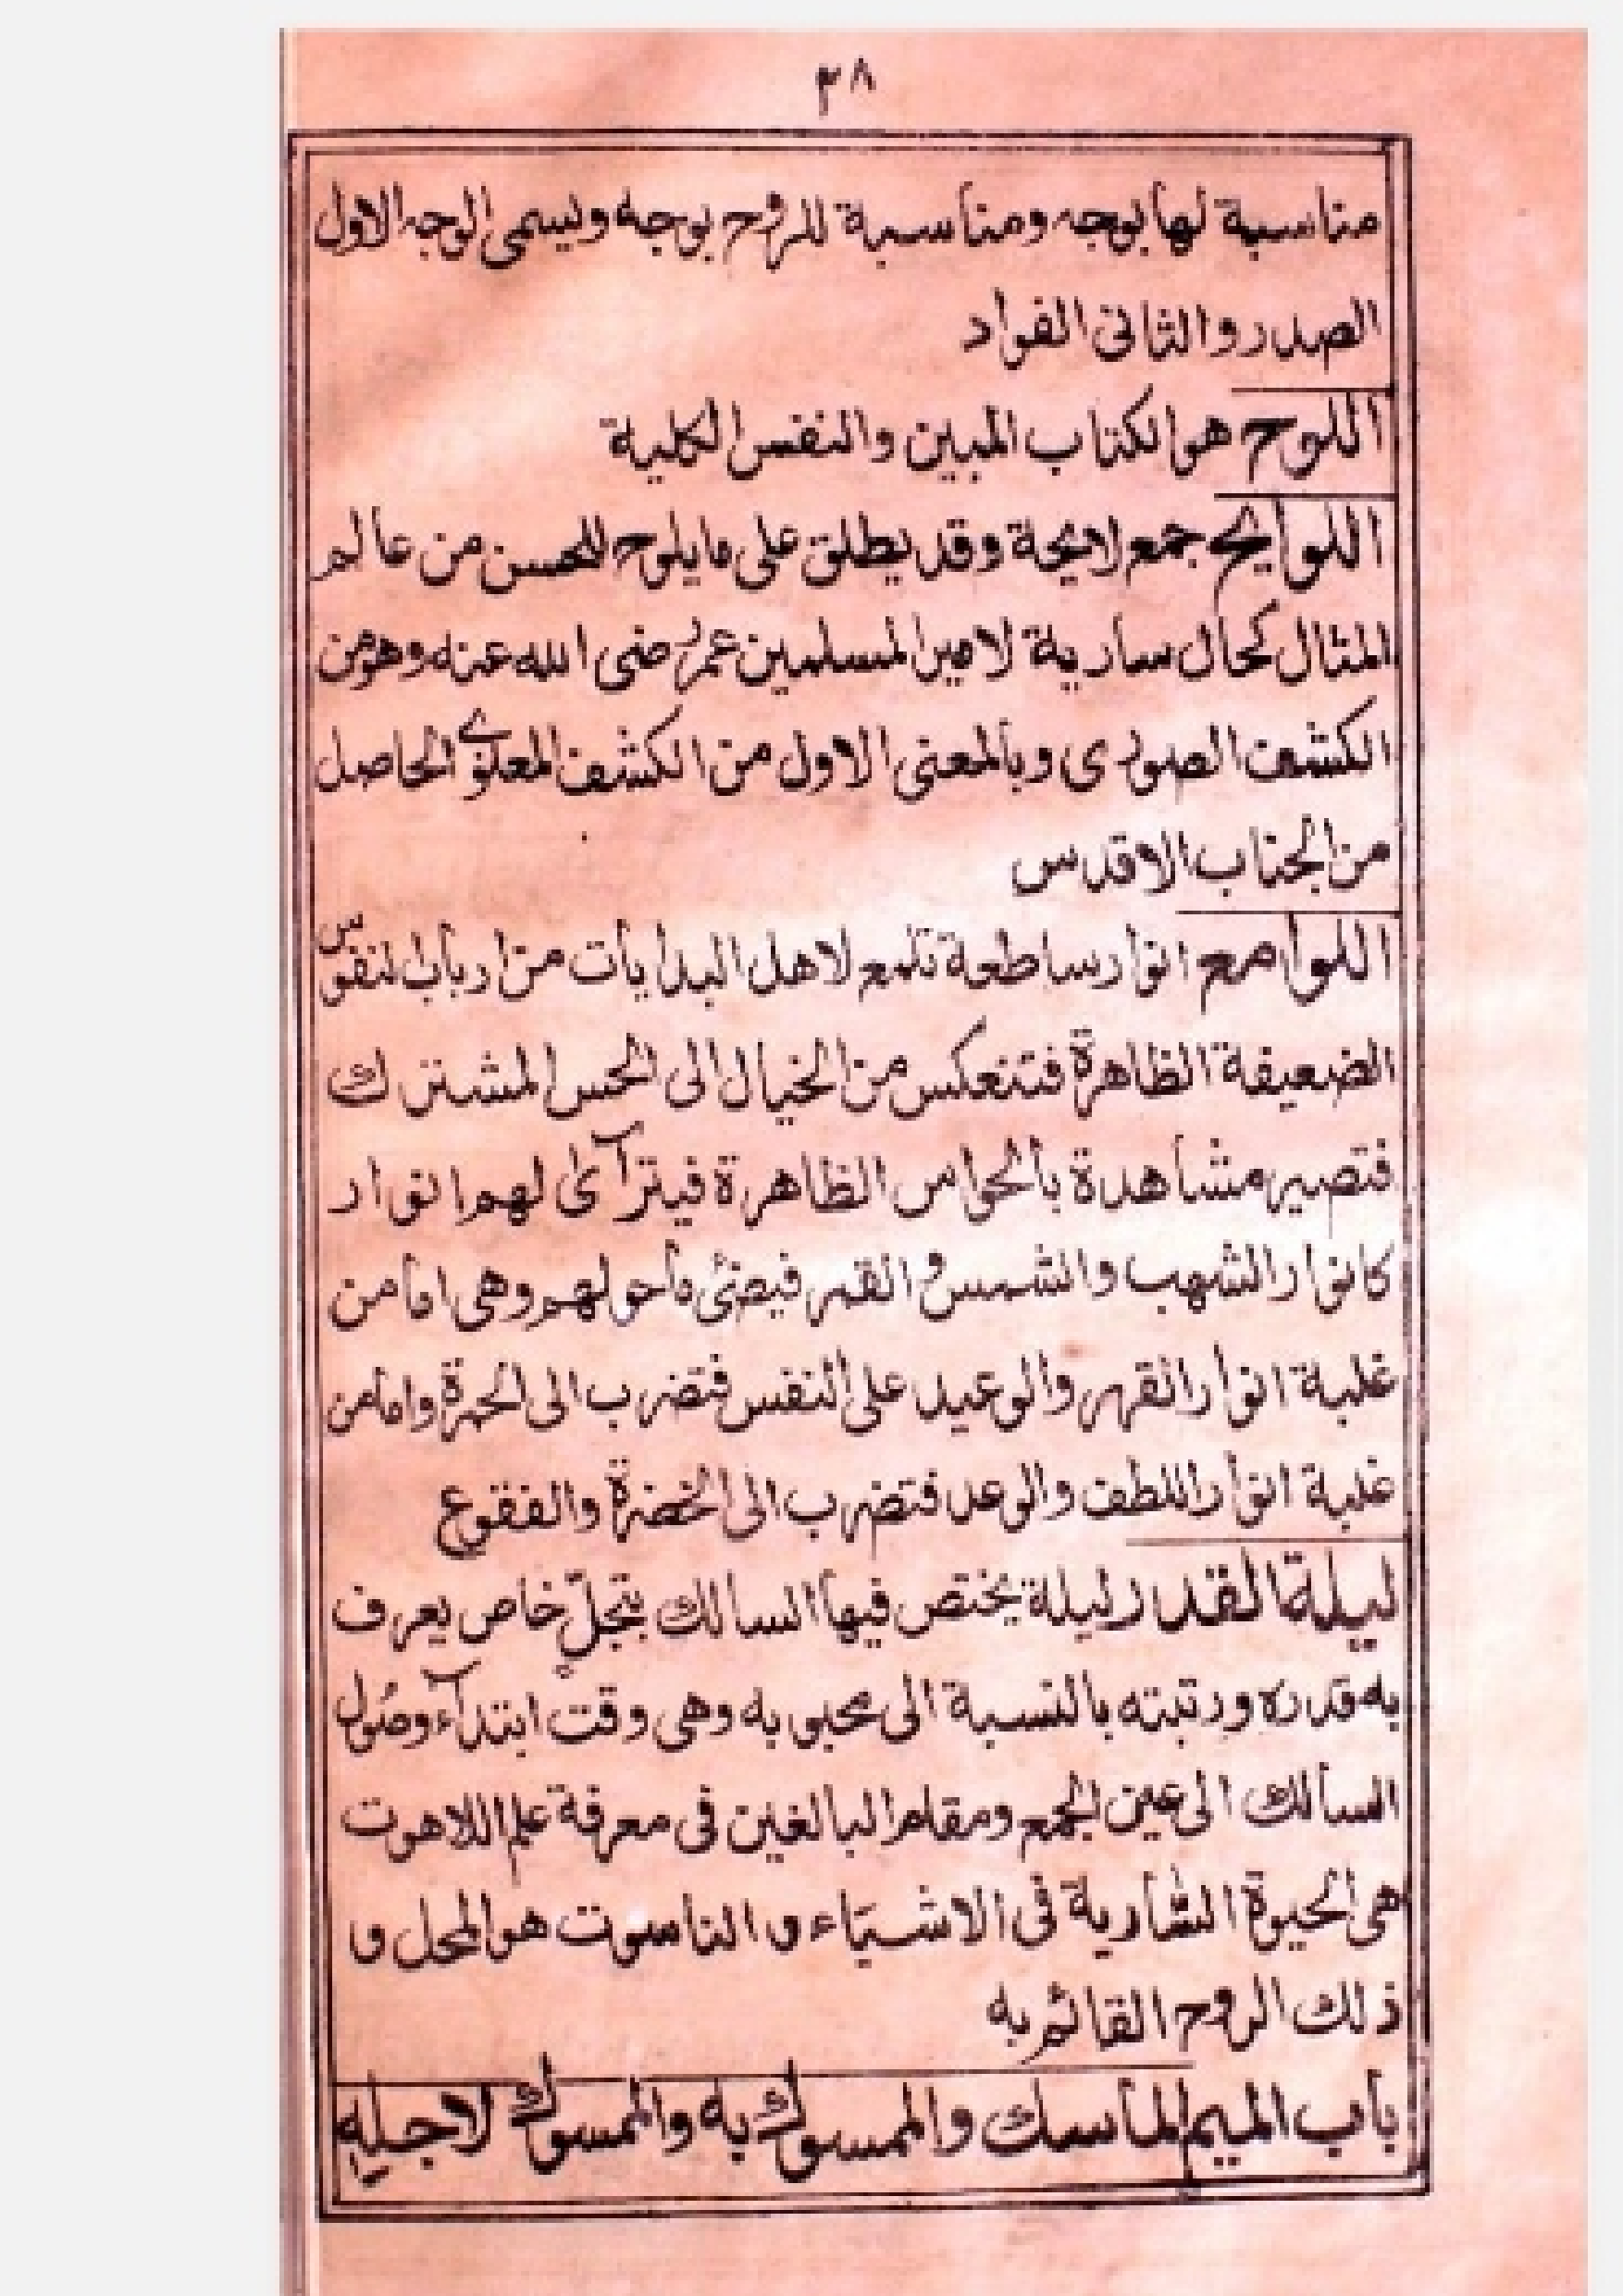 ٣٨
مناسبة لها بوجه ومناسبة للروح بوجه ويسمى الوجه الاول
الصدر والثانى الفواد
اللوح هو الكتاب المبين والنفس الكلية
اللوايح جمع لايحة وقد يطلق على ما يلوح للحسن من عالم
المثال كحال سارية لامير المسلمين عمر رضى الله عنه وهو من
الكشف الصورى وبالمعنى الاول من الكشف المعنوے الحاصل
من الجناب الاقدس
اللوامع انوار ساطعة تلمع لاهل البدايات من ارباب النفوس
الضعيفة الظاهرة فتنعكس من الخيال الى الحس المشترك
فتصير مشاهدة بالحواس الظاهرة فيترآئ لهم انوار
كانوار الشهب والشمس والقمر فيضئ ما حولهم وهى اما من
غلبة انوار القهر والوعيد على النفس فتضرب الى الحمرة واما من
غلبة انوار اللطف والوعد فتضرب الى الخضرة والفقوع
ليلة القدر ليلة يختص فيها السالك بتجلٍّ خاص يعرف
به قدره ورتبته بالنسبة الى محبوبه وهى وقت ابتدآء وصُول
السالك الى عين الجمع ومقام البالغين فى معرفة علم اللاهوت
هى الحيوة السّارية فى الاشيَاء و الناسوت هو المحل و
ذلك الروح القائم به
باب الميم الماسك والممسوك به والممسوك لاجلِهِ